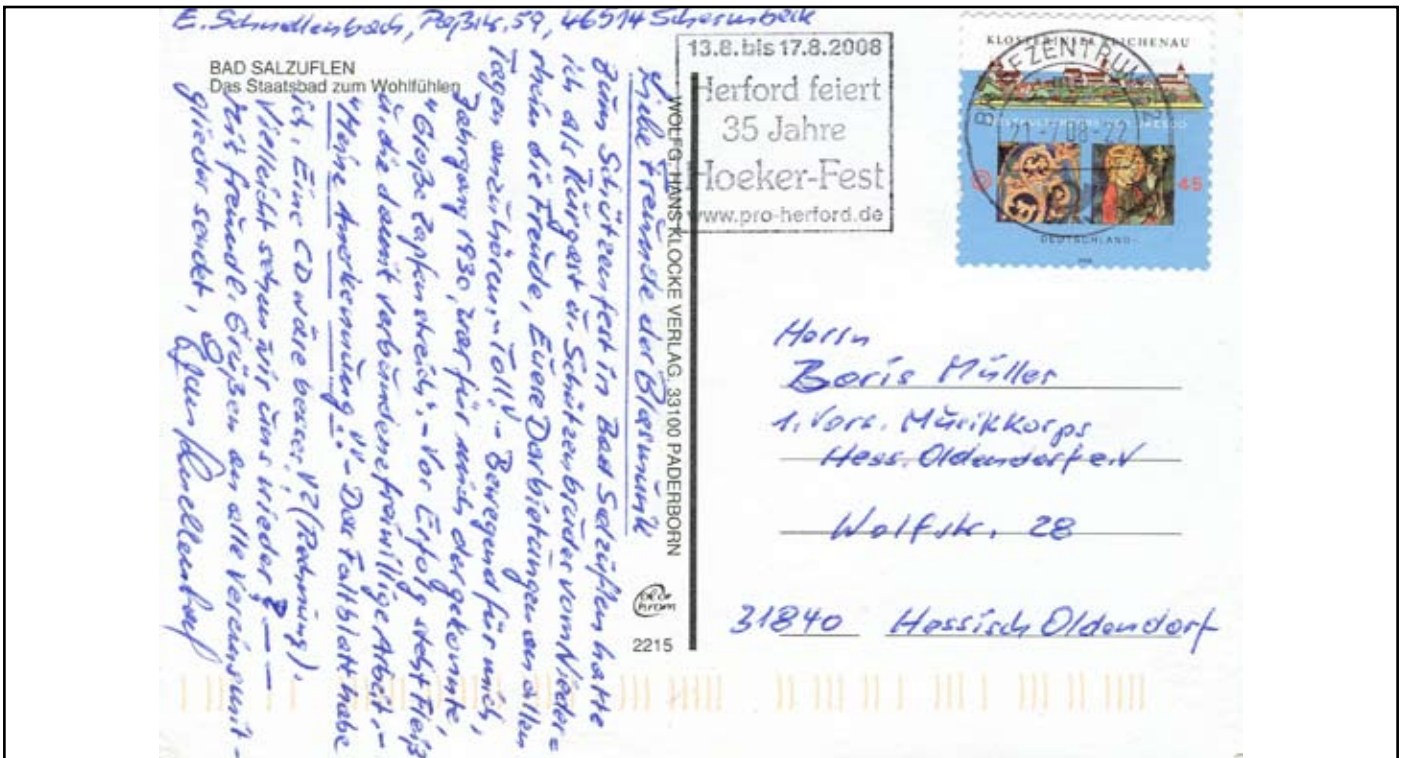 E. Schnellenbach, Poßstr. 59, 46514 Schermbeck
BAD SALZUFLEN
Das Staatsbad zum Wohlfühlen
Liebe Freunde der Blasmusik
Zum Schützenfest in Bad Salzuflen hatte
ich als Kurgast u. Schützenbruder vom Nieder=
rhein die Freude, Euere Darbietungen an allen
Tagen anzuhören, - Toll! - Bewegend für mich,
Jahrgang 1930, war für mich der gekonnte,
"Große Zapfenstreich". - Vor Erfolg steht Fleiß
u. die damit verbundene freiwillige Arbeit, -
"Meine Anerkennung" - Das Faltblatt habe
ich, Eine CD wäre besser, (Rechnung),
Vielleicht sehen wir uns wieder? --
Mit freundl. Grüßen an alle Vereinsmit-
glieder sendet, Schnellenbach
WOLFG. HANS KLOCKE VERLAG, 33100 PADERBORN
color
chrom
2215
13.8. bis 17.8.2008
Herford feiert
35 Jahre
Hoeker-Fest
www.pro-herford.de
KLOSTERINSEL REICHENAU
BRIEFZENTRUM 32
21.-7.08-22
45
DEUTSCHLAND
2008
Herrn
Boris Müller
1. Vors. Musikkorps
Hess. Oldendorf e.V
Wolfsk. 28
31840 Hessisch Oldendorf